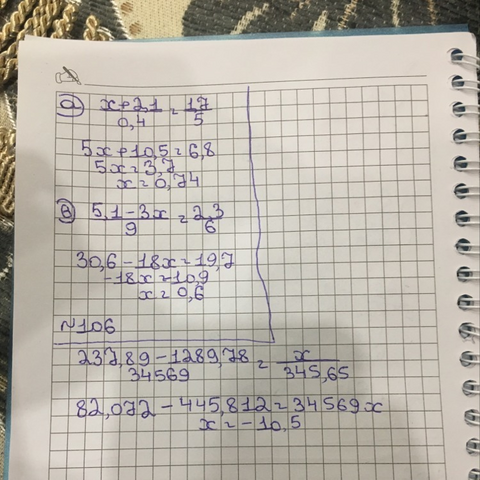 а) x+2,1/0,4 = 17/5
5x+10,5=6,8
5x=3,7
x=0,74
в) 5,1-3x/9 = 2,3/6
30,6-18x=19,7
-18x=10,9
x=0,6
№106
237,89-1289,78/34569 = x/345,65
82,072-445,812=34569x
x=-10,5